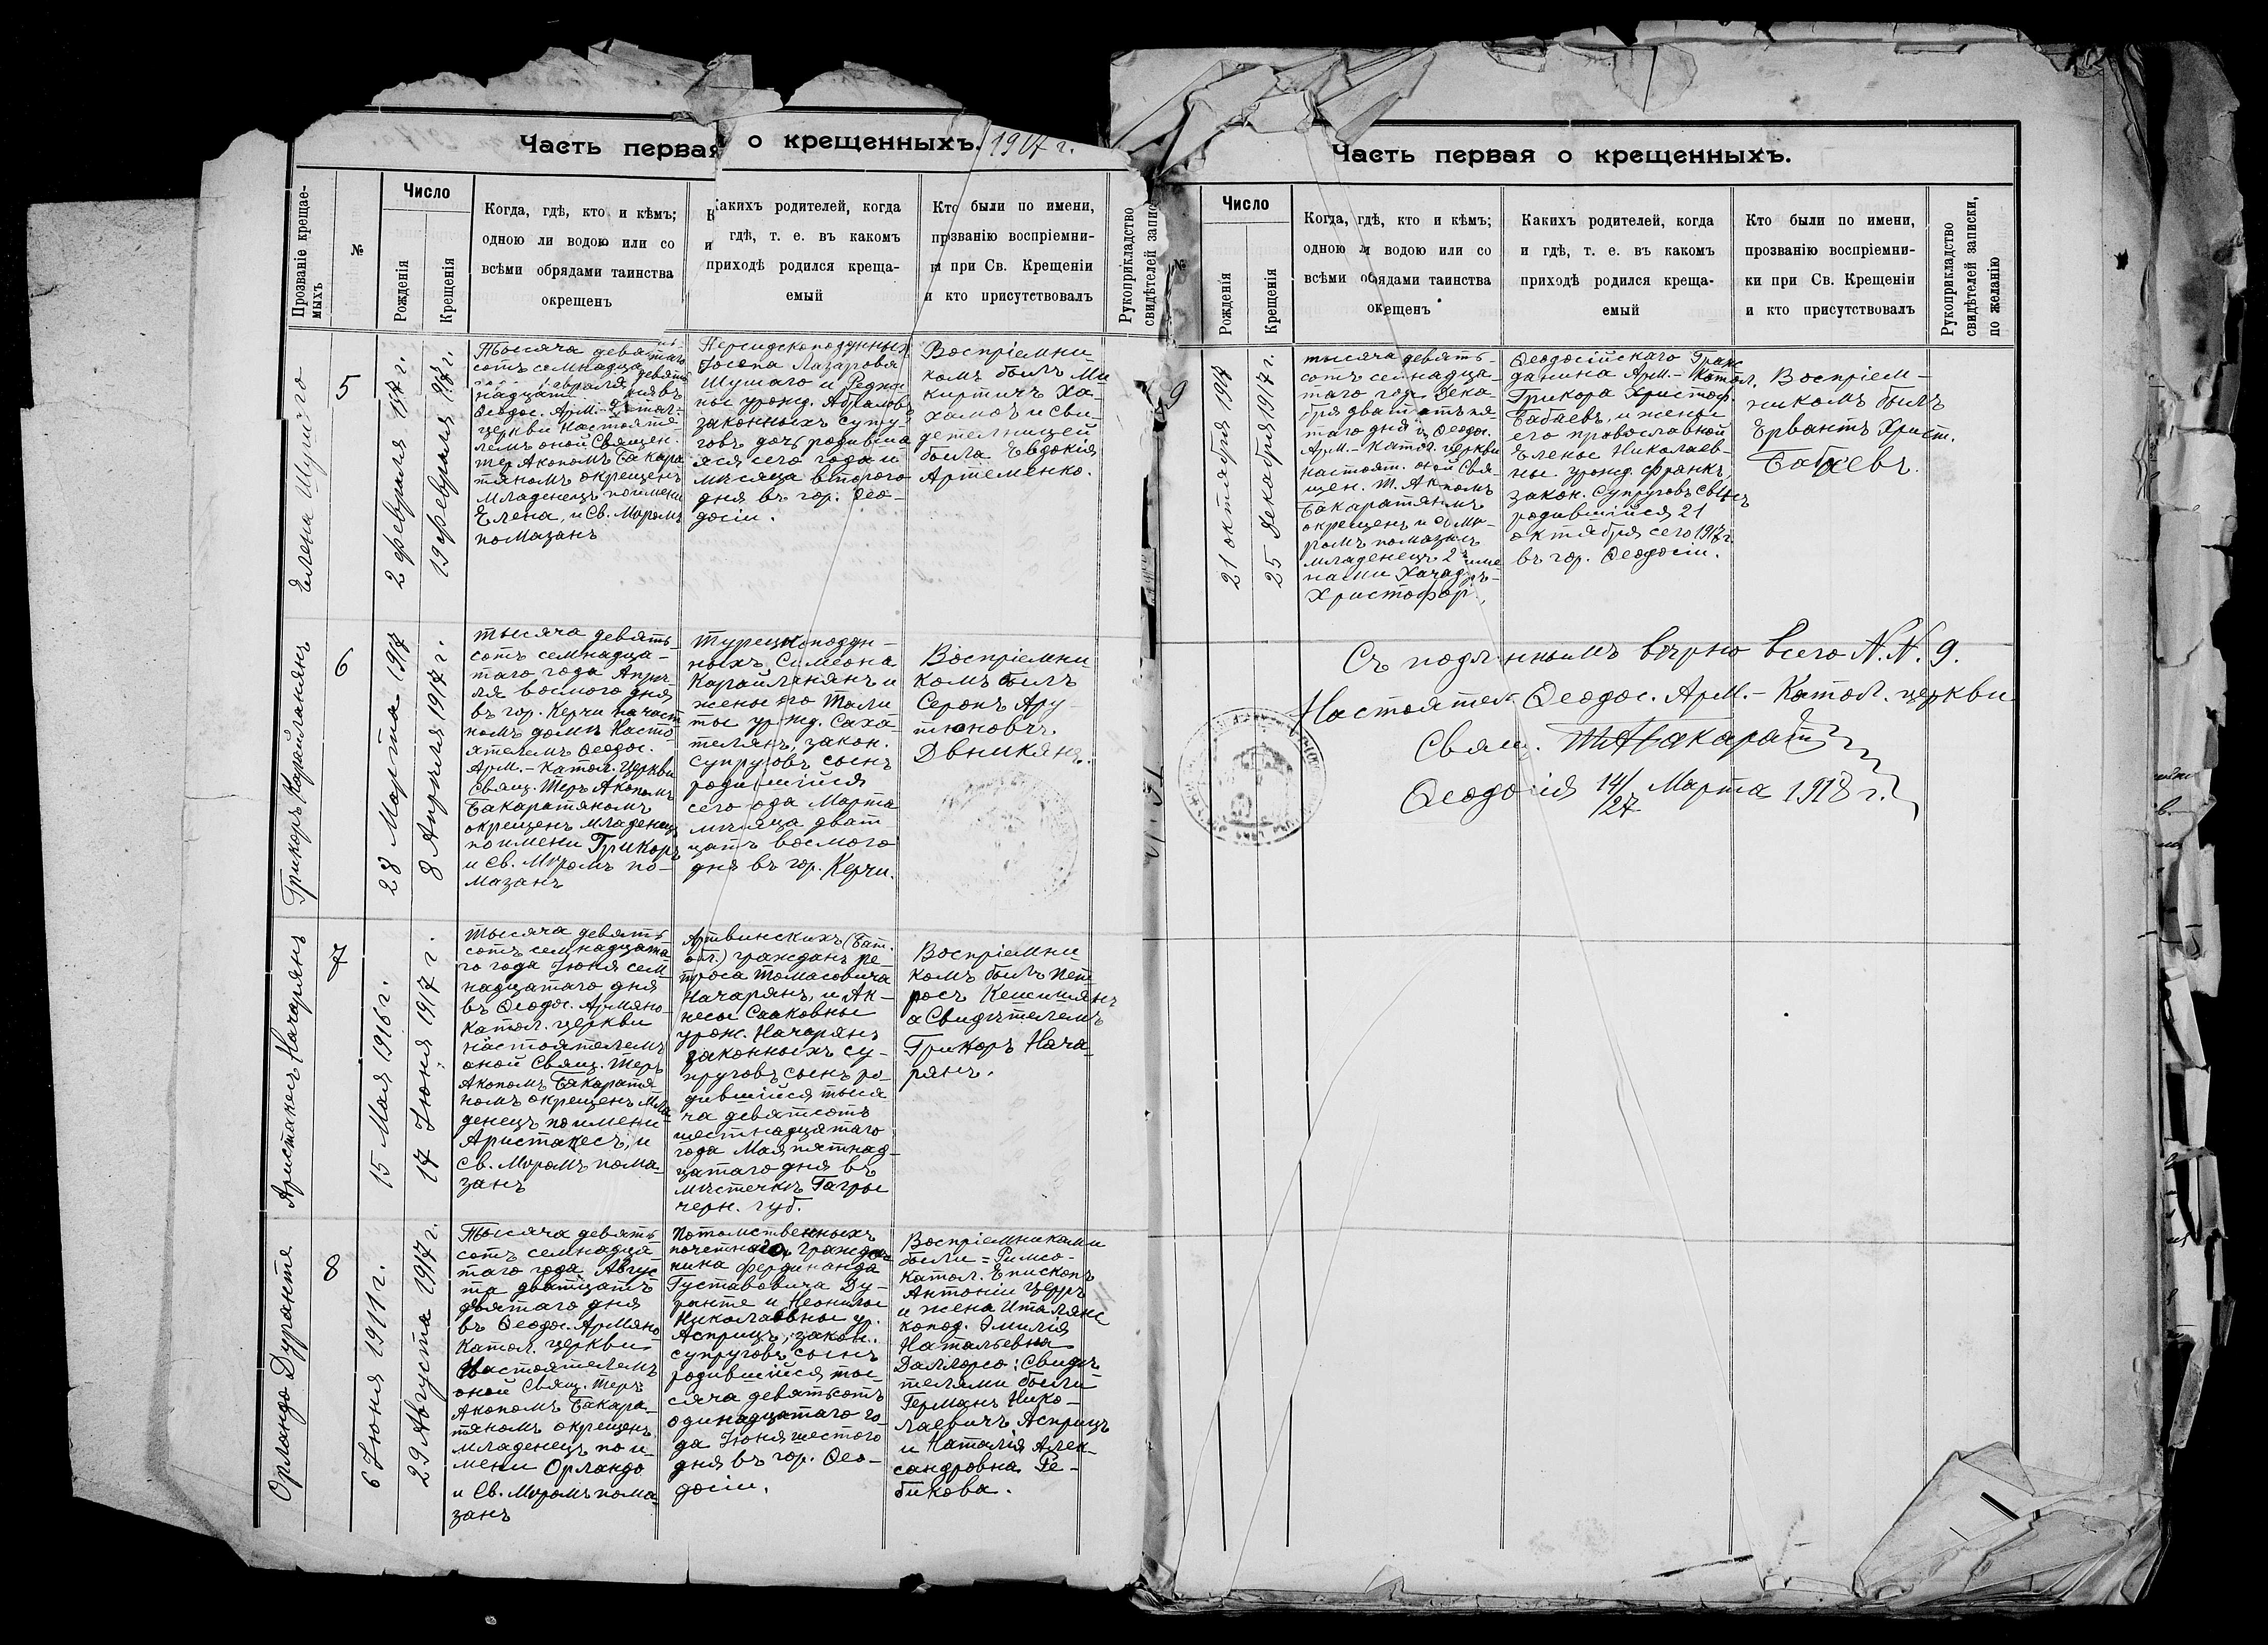 Часть первая о крещенныхъ. 1917 г.
Прозваніе крещае-
мыхъ
№
Число
Рожденія
Крещенія
Когда, гдѣ, кто и кѣмъ;
одною ли водою или со
всѣми обрядами таинства
окрещенъ
Какихъ родителей, когда
и гдѣ, т. е. въ какомъ
приходѣ родился креща-
емый
Кто были по имени,
прозванію воспріемни-
ки при Св. Крещеніи
и кто присутствовалъ
Рукоприкладство
свидѣтелей запис
Елена
5
2 февраля 1917 г.
19 февраля 1917 г.
Тысяча девять
сотъ семнадца таго
февраля девят
надцат дня въ
Ѳеодос. Арм.-Катол.
церкви настояте
лемъ оной Священ.
Тер Акопомъ Бакара
тяномъ окрещенъ
младенецъ по имени
Елена, и Св. Муромъ
помазанъ
Персидскоподданныхъ
Іосепа Лазарова
Шушаго и
урожд. Абраловъ
законныхъ супру-
говъ дочь родивша
яся сего года и
мѣсяца второго
дня въ гор. Ѳео-
досіи.
Воспріемни
комъ былъ Ми
киртичъ Ха-
хамовъ и сви-
детельницей
была Евдокія
Артеменко.
Грикоръ Карайланянъ
6
28 Марта 1917
8 Апрѣля 1917 г.
тысяча девять
сотъ семнадца-
таго года Апрѣ-
ля восмого дня
въ гор. Керчи на част
номъ домѣ Насто
ятелемъ Ѳеодос.
Арм.-Катол. церкви
Свящ. Теръ Акопомъ
Бакаратяномъ
окрещенъ младенецъ
по имени Грикоръ
и Св. Муромъ по-
мазанъ
Турецкоподдан-
ныхъ Симеона
Карайланянъ и
жены его
урожд. Саха-
телянъ, закон.
супруговъ сынъ
родившійся
сего года Марта
мѣсяца двад
цать восмого
дня въ гор. Керчи.
Воспріемни
комъ былъ
Серопъ Ару-
тюновъ
Двникянъ.
Аристакесъ Начарянъ
7
15 Мая 1916 г.
17 Іюня 1917 г.
тысяча девять
сотъ семнадцата
го года Іюня сем
надцатаго дня
въ Ѳеодос. Армяно-
Катол. церкви
настоятелемъ
оной Свящ. Теръ
Акопомъ Бакаратя
номъ окрещенъ мла
денецъ по имени
Аристакесъ, и
Св. Муромъ пома-
занъ
Артвинскихъ (Бат.
обл.) гражданъ Пе-
троса Томасовича
Начарянъ, и Ак-
несы Сааковны
урож. Начарянъ
законныхъ су-
пруговъ сынъ ро-
дившійся тыся
ча девятсотъ
шестнадцатаго
года Мая пятнад-
цатаго дня въ
мѣстечкѣ Гагры
черн. губ.
Воспріемни
комъ былъ Пет
росъ Кешишянъ
а Свидѣтелемъ
Грикоръ Нача-
рянъ.
Орландо Дуранте
8
6 Іюня 1911 г.
29 Августа 1917 г.
Тысяча девять
сотъ семнадца
таго года Авгус
та двадцать
девятаго дня
въ Ѳеодос. Армяно
Катол. церкви
Настоятелемъ
оной Свящ. Теръ
Акопомъ Бакара-
тяномъ окрещенъ
младенецъ по и-
мени Орландо
и Св. Муромъ пома
занъ
Потомственныхъ
почетнаго гражда
нина Фердинанда
Густавовича Ду-
ранте и Неонилы
Николаевны ур.
Асприцъ, закон.
супруговъ сынъ
родившійся ты-
сяча девятьсотъ
одинадцатаго го-
да Іюня шестого
дня въ гор. Ѳео-
досіи.
Воспріемниками
были = Римско-
Катол. Епископъ
Антоній Церръ
и жена Италянс
копод. Эмилія
Натальевна
Даллорсо; Свидѣ
телями были
Германъ Нико-
лаевичъ Асприцъ
и Наталія Алек-
сандровна Ре-
бикова.
Часть первая о крещенныхъ.
№
Число
Рожденія
Крещенія
Когда, гдѣ, кто и кѣмъ;
одною ли водою или со
всѣми обрядами таинства
окрещенъ
Какихъ родителей, когда
и гдѣ, т. е. въ какомъ
приходѣ родился креща-
емый
Кто были по имени,
прозванію воспріемни-
ки при Св. Крещеніи
и кто присутствовалъ
Рукоприкладство
свидѣтелей записки,
по желанію
9
21 октября 1917
25 декабря 1917 г.
тысяча девять-
сотъ семнадца-
таго года Дека-
бря двадцать пя
таго дня въ Ѳеодос.
Арм.-Катол. церкви
настоят. оной Свя-
щен. Т. Акопомъ
Бакаратяномъ
окрещенъ и Св. Му-
ромъ помазанъ
младенецъ 2 име
нами Хачадуръ-
Христофоръ,
Ѳеодосійскаго Граж
данина Арм.-Катол.
Грикора Христоф.
Бабаевъ, и жены
его православной
Елены Николаев-
ны урожд. Франкъ
закон. супруговъ сынъ
родившійся 21
октября сего 1917 г.
въ гор. Ѳеодосіи.
Воспріем-
никомъ былъ
Ервантъ Христ.
Бабаевъ.
Съ подлиннымъ вѣрно всего N.N. 9.
Настоятел Ѳеодос. Арм.-Катол. церкви
Свящ.
Ѳеодосія 14/27 Марта 1918 г.